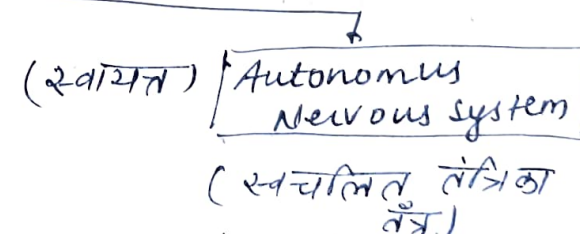 (स्वायत्त) Autonomus
Nervous system
(स्वचलित तंत्रिका
तँत्र)